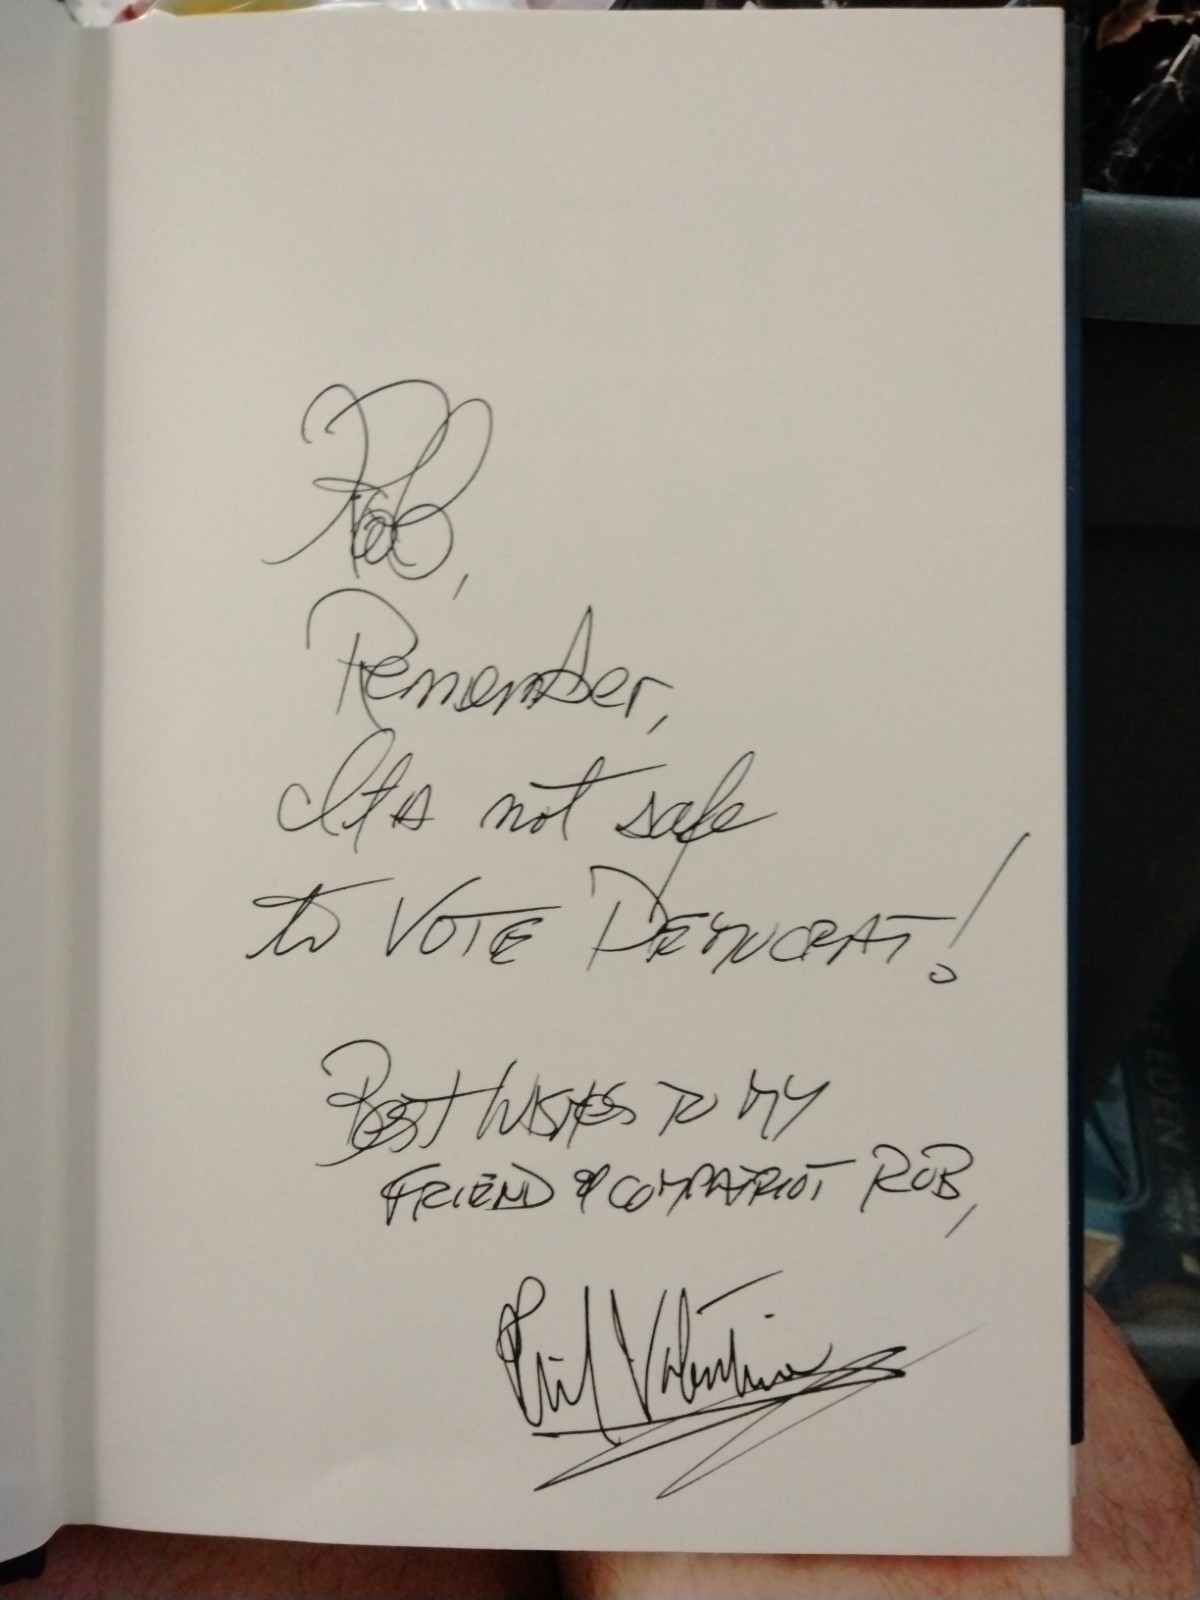 Rob,
Remember,
Its not safe
to VOTE DEMOCRAT!
BEST WISHES TO MY
FRIEND & COMPATRIOT ROB,
Phil Valentine